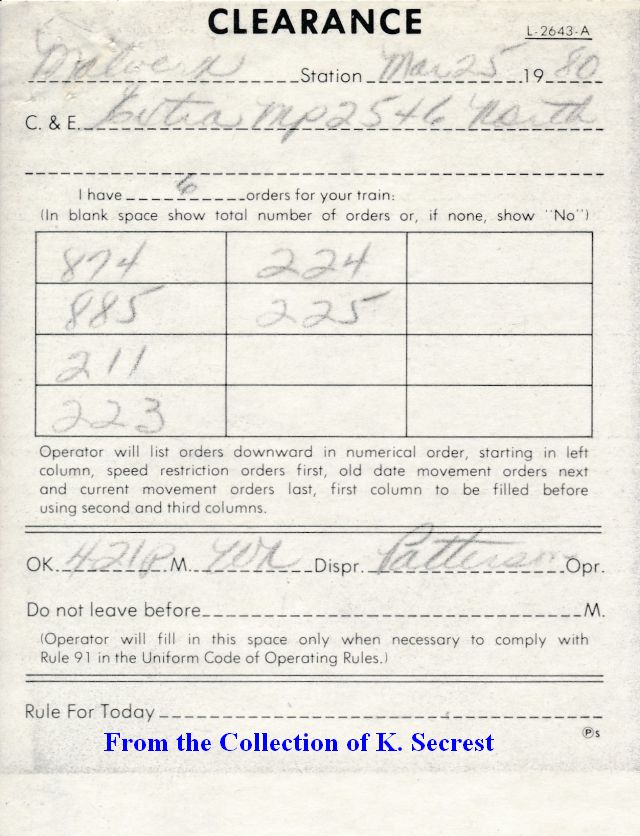 CLEARANCE
L-2643-A
Malvern Station Mar 25 1980
C. & E. Extra MP 2546 North
I have 6 orders for your train:
(In blank space show total number of orders or, if none, show "No")
874 224
885 225
211
223
Operator will list orders downward in numerical order, starting in left
column, speed restriction orders first, old date movement orders next
and current movement orders last, first column to be filled before
using second and third columns.
OK. 421P M. Dispr. Patterson Opr.
Do not leave before M.
(Operator will fill in this space only when necessary to comply with
Rule 91 in the Uniform Code of Operating Rules.)
Rule For Today
Ⓟs
From the Collection of K. Secrest